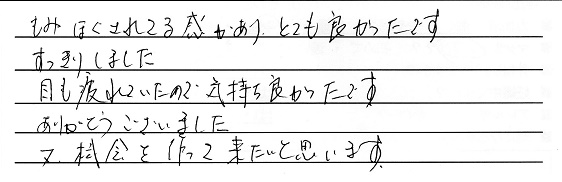 もみほぐされてる感があり、とても良かったです
すっきりしました
目も疲れていたので気持ち良かったです
ありがとうございました
又、機会を作って来たいと思います。